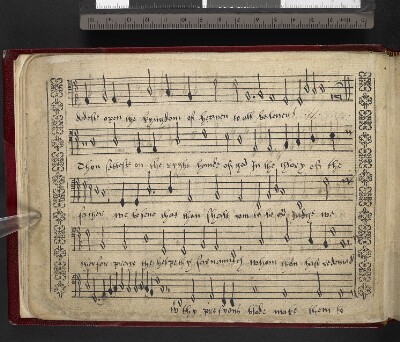 diddest open the kyngdom of heaven to all belevers
Thou sittest on the ryght hande of god In the Glory of the
father we beleve that thou shalt com to be our Judge we
therfor praye the helpe thy servauntes whom thou hast redemed
w thy precyous blode make them to